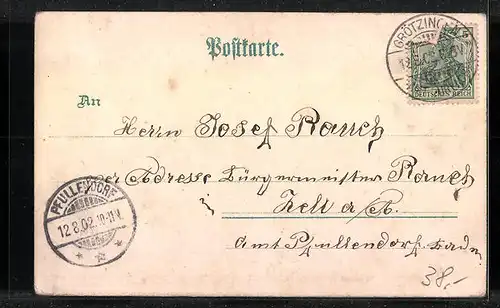 Postkarte.
GRÖTZINGEN
5
DEUTSCHES REICH
An
Herrn Josef Rauch
per Adresse Bürgermeister Rauch
Zell a/A.
Amt Pfullendorf Baden
PFULLENDORF
12.8.02. 10-11V.
38,-